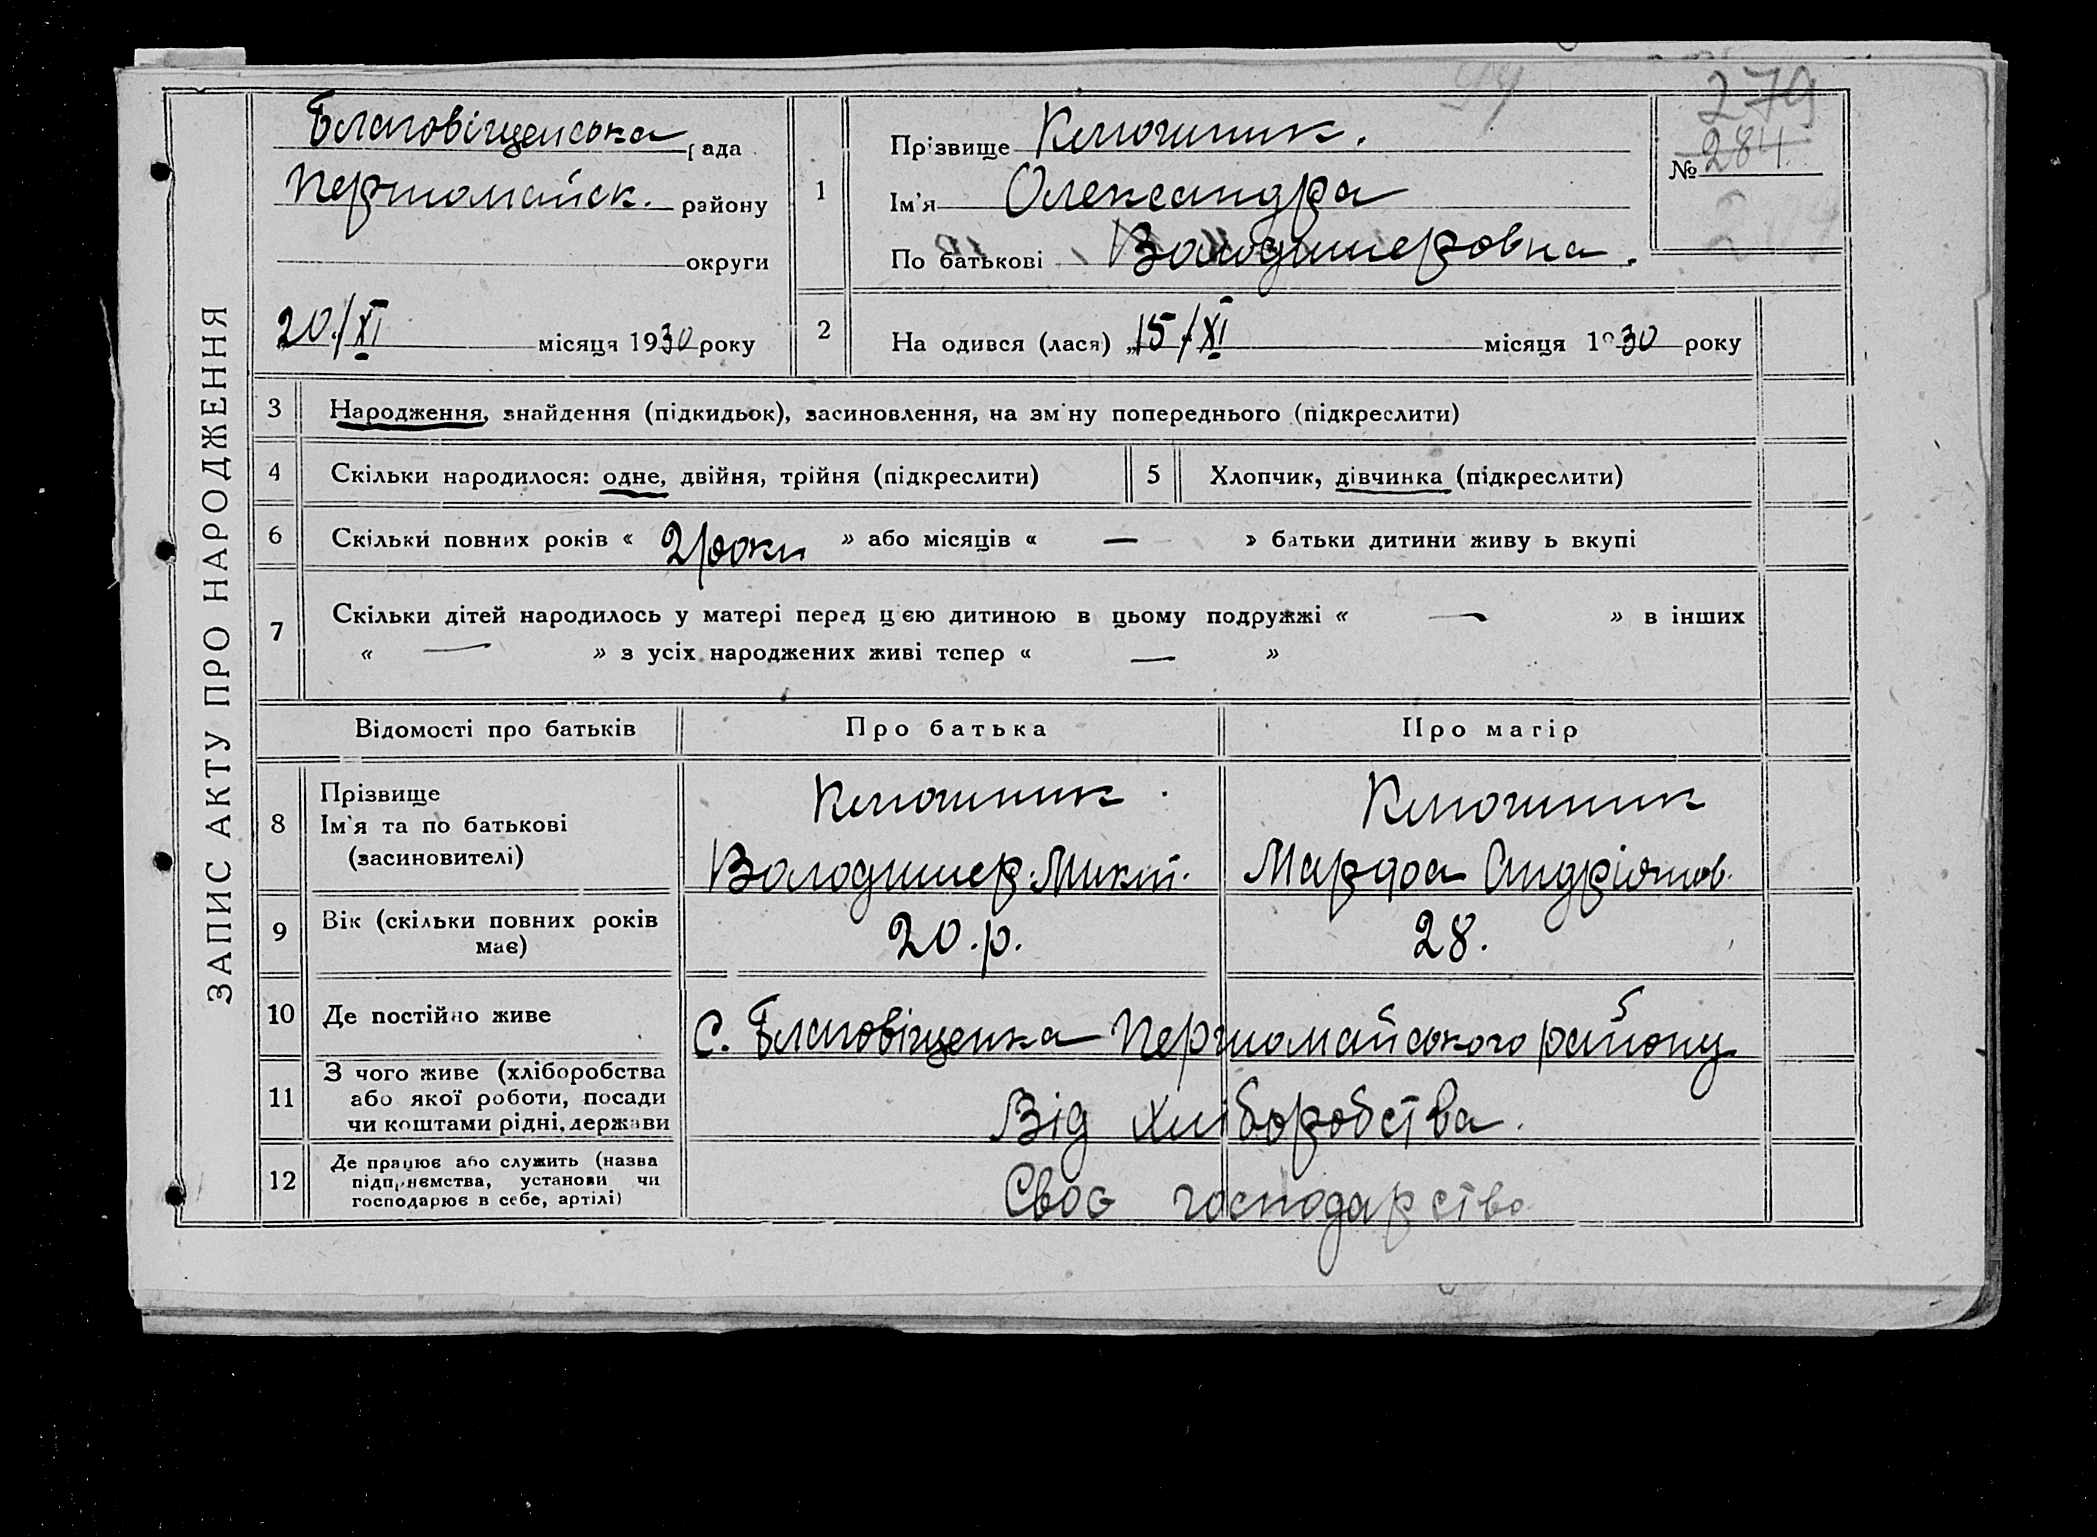 ЗАПИС АКТУ ПРО НАРОДЖЕННЯ
Благовіщенська рада
Першомайск. району
округи
20/XI місяця 1930 року
1
Прізвище Ключник.
Ім'я Олександра
По батькові Володимеровна.
279
№ 284
2
На одився (лася) „15/XI місяця 1930 року
3 Народження, знайдення (підкидьок), засиновлення, на зм ну попереднього (підкреслити)
4 Скільки народилося: одне, двійня, трійня (підкреслити)
5 Хлопчик, дівчинка (підкреслити)
6 Скільки повних років « 2 роки » або місяців « — » батьки дитини живу ь вкупі
7 Скільки дітей народилось у матері перед цією дитиною в цьому подружжі « — » в інших
« — » з усіх народжених живі тепер « — »
Відомості про батьків Про батька Про матір
8 Прізвище
Ім'я та по батькові
(засиновителі)
Ключник.
Володимер. Микит.
Ключник
Марфа Андріянов.
9 Вік (скільки повних років
має)
20. р.
28.
10 Де постійно живе
С. Благовіщенка Першомайського району
11 З чого живе (хліборобства
або якої роботи, посади
чи коштами рідні, держави
Від хліборобства.
12 Де працює або служить (назва
підприємства, установи чи
господарює в себе, артілі)
Своє господарство